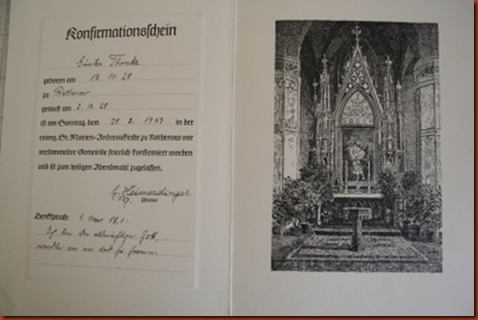 Konfirmationsschein
Günter
geboren am 19.11.28
zu Rathenow
getauft am 2.12.28
ist am Sonntag dem 28.2.1943 in der
evang. St. Marien-Andreaskirche zu Rathenow vor
versammelter Gemeinde feierlich konfirmiert worden
und ist zum heiligen Abendmahl zugelassen.
Pfarrer
Denkspruch: 1. Mose 17,1:
Ich bin der allmächtige Gott,
wandle vor mir und sei fromm.